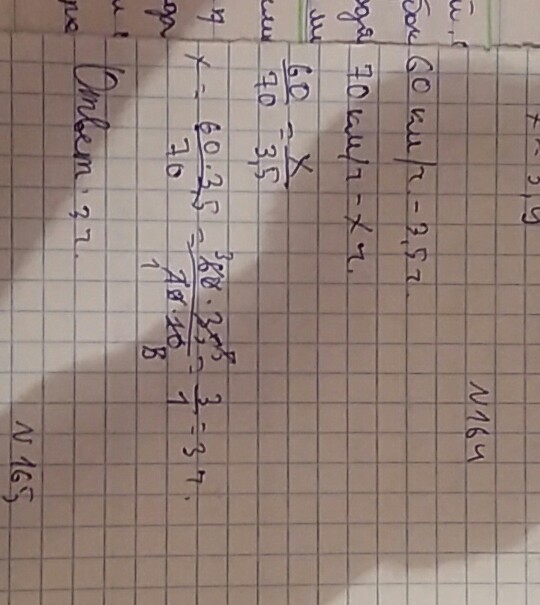 N 164
60 км/ч. - 3,5 ч.
70 км/ч - х ч.
60/70 = х/3,5
х = 60·3,5/70 = 60·35/70·10 = 3/1 = 3 ч.
Ответ: 3 ч.
N 165